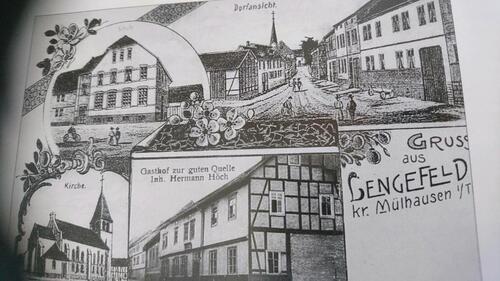 Dorfansicht.
Gasthof zur guten Quelle
Inh. Hermann Höch
Kirche.
GRUSS
aus
LENGEFELD
kr. Mülhausen i/T